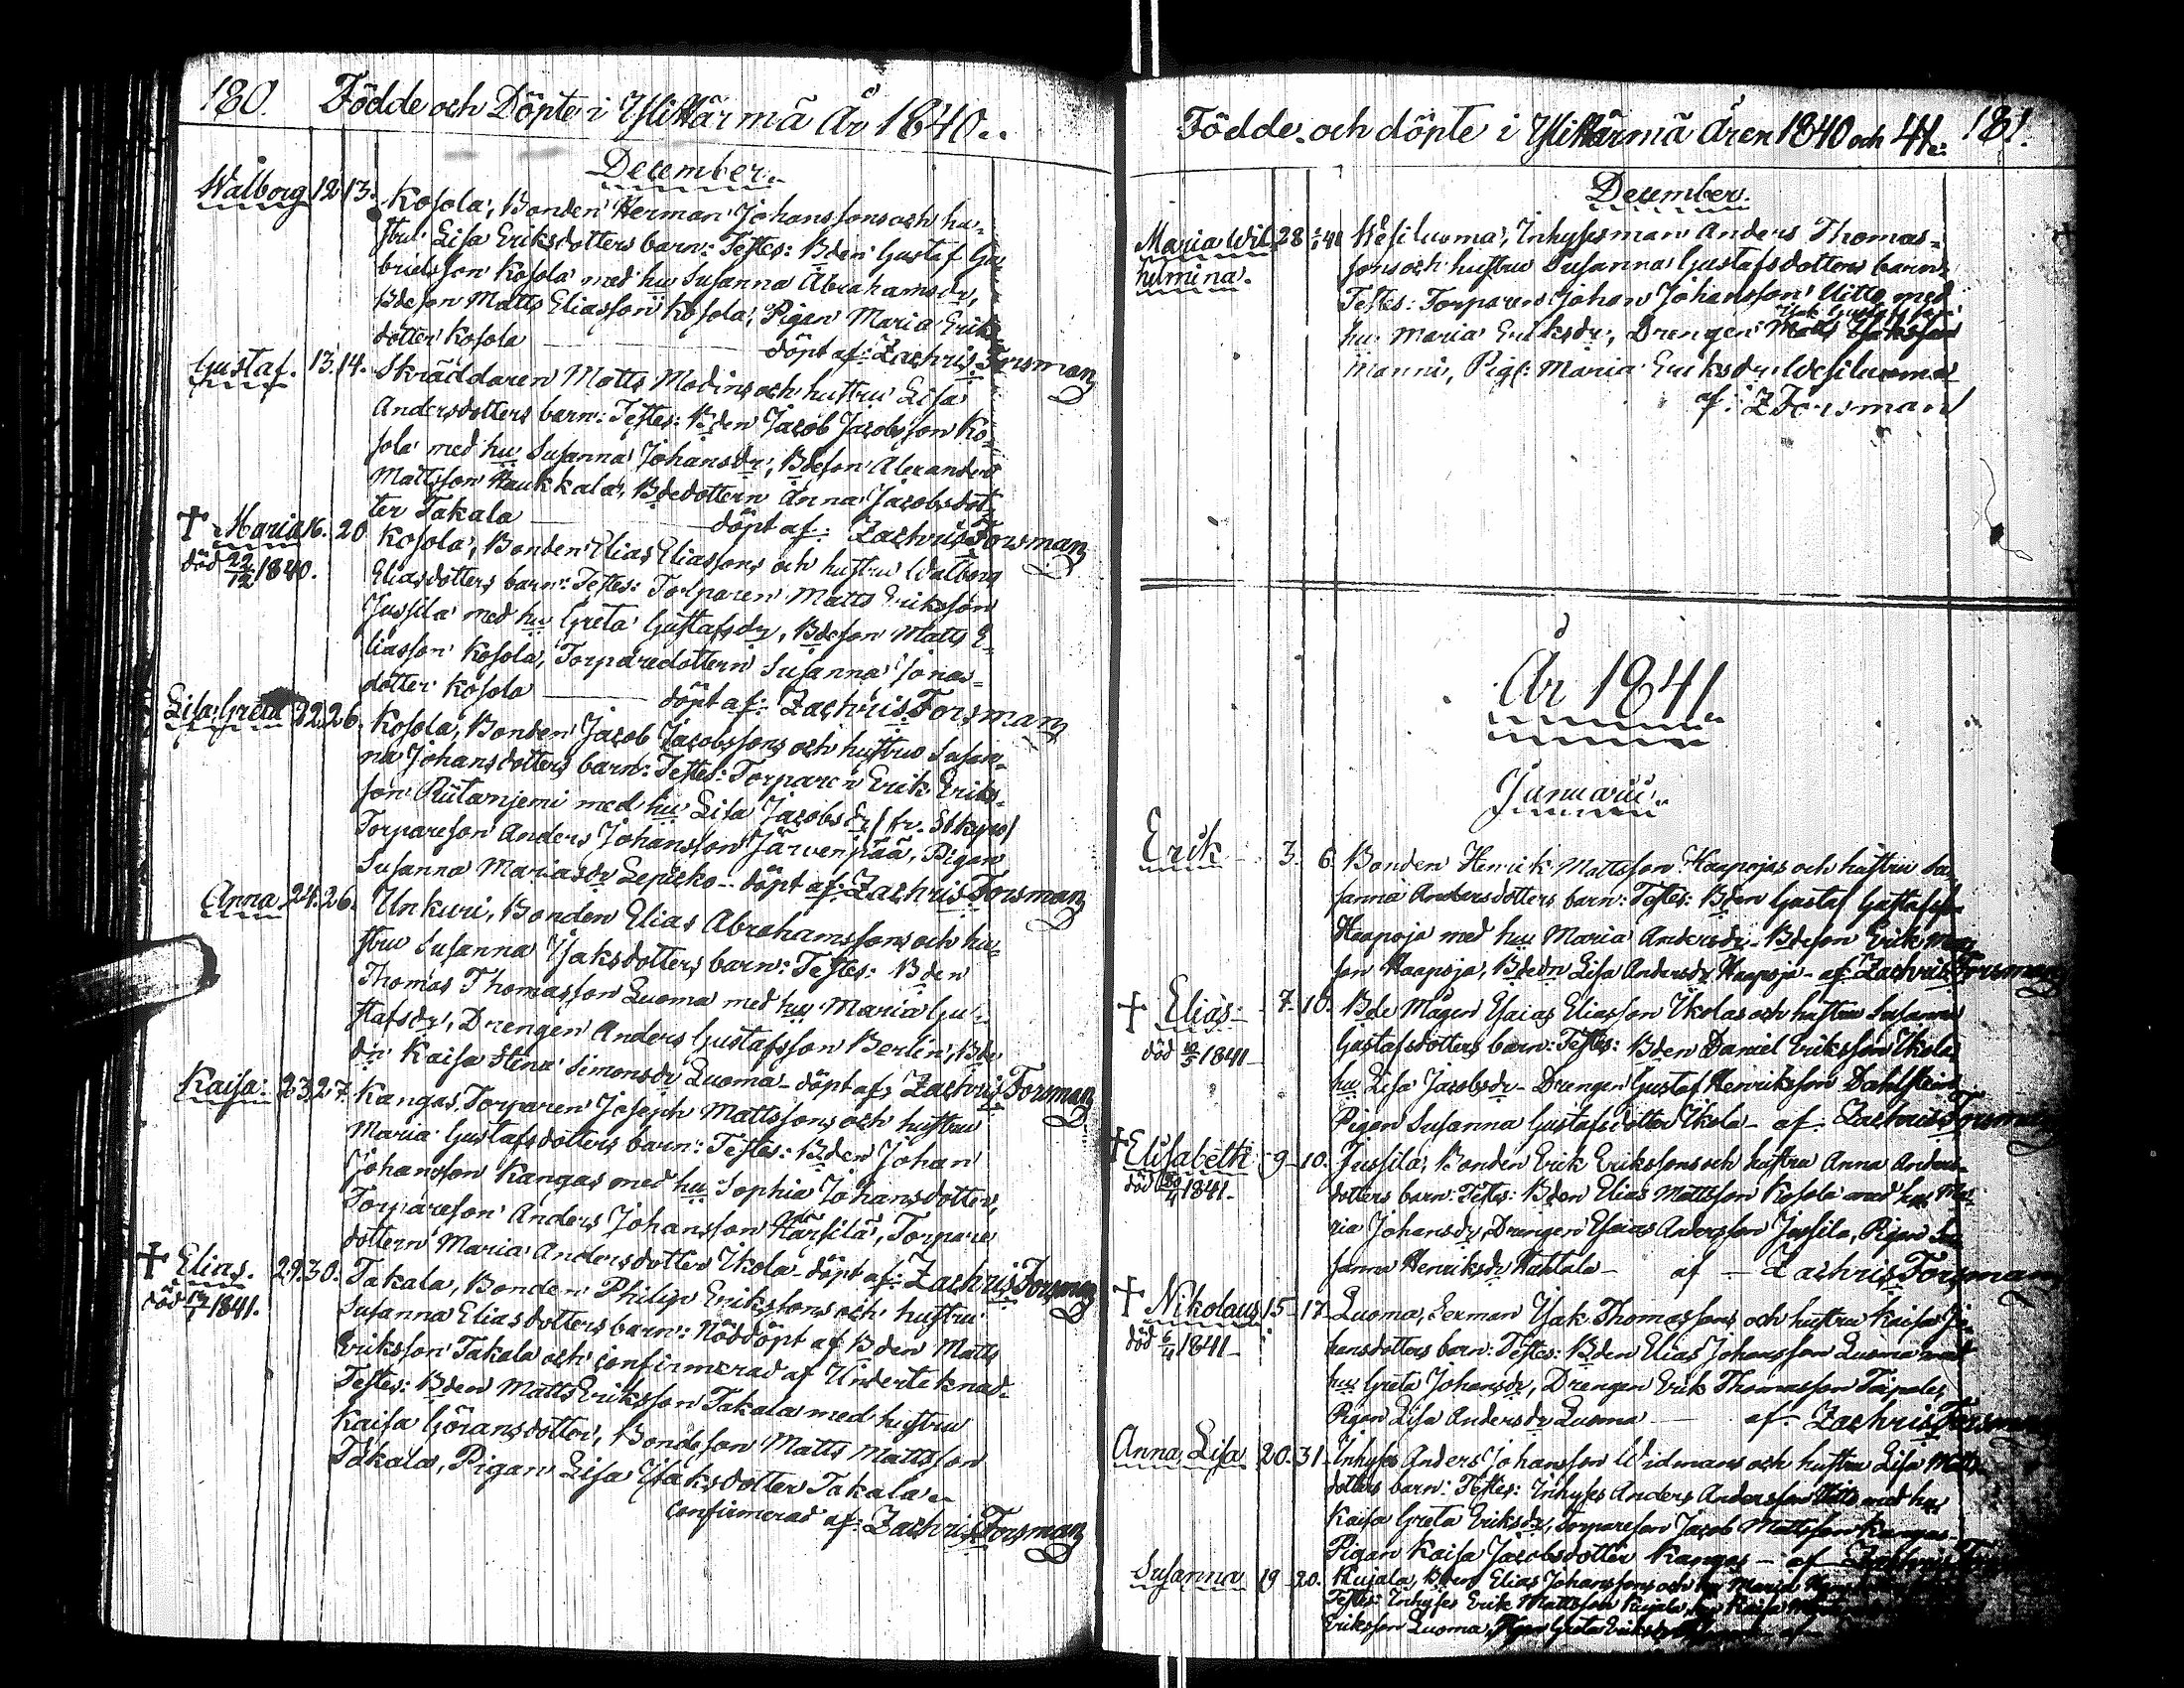 180. Födde och Döpte i Ylihärmä År 1840..
December.
Walborg 12 13. Kosola, Bonden Herman Johanssons och hu-
stru Lisa Eriksdotters barn: Testes: Bden Gustaf Ga-
brielsson Kosola med hu Susanna Abrahamsdr,
Bdeson Matts Eliasson Kosola, Pigan Maria Eriks
dotter Kosola döpt af: Zachris Forsman
Gustaf. 13. 14. Skräddaren Matts Modins och hustru Lisa
Andersdotters barn: Testes: Bden Jacob Jacobsson Ko-
sola med hu Susanna Johansdr, Bdeson Alexander
Mattsson Haukkala, Bdedottern Anna Jacobsdot-
ter Takala döpt af: Zachris Forsman
† Maria 16. 20 Kosola, Bonden Elias Eliassons och hustru Walborg
död 22/12 1840. Eliasdotters barn: Testes: Torparen Matts Eriksson
Jussila med hu Greta Gustafsdr, Bdeson Matts E-
liasson Kosola, Torparedottern Susanna Jonas-
dotter Kosola döpt af: Zachris Forsman
Lisa Greta 22. 26. Kosola, Bonden Jacob Jacobssons och hustru Susan-
na Johansdotters barn: Testes: Torparen Erik Eriks-
son Riitanjemi med hu Lisa Jacobsdr / fr. Stkyro /
Torpareson Anders Johansson Järvenpää, Pigan
Susanna Mariasdr döpt af: Zachris Forsman
Anna 24. 26. Unkuri, Bonden Elias Abrahamssons och hu-
stru Susanna Isaksdotters barn: Testes: Bden
Thomas Thomasson Luoma med hu Maria Gu-
stafsdr, Drengen Anders Gustafsson Berlin, Bde
dr Kaisa Stina Simonsdr Luoma - döpt af: Zachris Forsman
Kaisa. 23. 27. Kangas, Torparen Joseph Mattssons och hustru
Maria Gustafsdotters barn: Testes: Bden Johan
Johansson Kangas med hu Sophia Johansdotter,
Torpareson Anders Johansson Härsilä, Torpare
dottern Maria Andersdotter Ikola - döpt af: Zachris Forsman
† Elias. 29. 30. Takala, Bonden Philip Erikssons och hustru
död 1841. Susanna Eliasdotters barn: Nöddöpt af Bden Matts
Eriksson Takala och confirmerad af Underteknad.
Testes: Bden Matts Eriksson Takala med hustru
Kaisa Göransdotter, Bondeson Matts Mattsson
Takala, Pigan Lisa Isaksdotter Takala
confirmerad af: Zachris Forsman
Födde och döpte i Ylihärmä Åren 1840 och 41. 181.
December.
Maria Wil 28 1/1 41 Wesiluoma, Inhysesman Anders Thomas-
helmina. sons och hustru Susanna Gustafsdotters barn
Testes: Torparen Johan Johansson Uitto med
hu Maria Eriksdr, Drengen
Manni, Pig: Maria Eriksdr Wesiluoma
af: Z Forsman
År 1841.
Januarii.
Erik 3. 6. Bonden Henrik Mattsson Haapojas och hustru Su-
sanna Andersdotters barn: Testes: Bden Gustaf Gustafsson
Haapoja med hu Maria Andersdr - Bdeson Erik
son Haapoja, Bdedn Lisa Andersdr Haapoja - af Zachris Forsman
† Elias 7. 10. Bde Mågen Esaias Eliasson Ikolas och hustru Susanna
död 10/5 1841 Gustafsdotters barn: Testes: Bden Daniel Eriksson Ikola
hu Lisa Jacobsdr - Drengen Gustaf Henriksson Dahlsten
Pigan Susanna Gustafsdotter Ikola - af Zachris Forsman
† Elisabeth 9 - 10. Jussila, Bonden Erik Erikssons och hustru Anna Anders-
död 1841. dotters barn: Testes: Bden Elias Mattsson Kosola med hu Ma-
ria Johansdr, Drengen Esaias Andersson Jussila, Pigan Su-
sanna Henriksdr af - Zachris Forsman
† Nikolaus 15 - 17. Luoma, Isak Thomassons och hustru Kaisa Jo-
död 6/4 1841 hansdotters barn: Testes: Bden Elias Johansson Luoma med
hu Greta Johansdr, Drengen Erik Thomasson Taipale,
Pigan Lisa Andersdr Luoma - af Zachris Forsman
Anna Lisa 20. 31. Inhyses Anders Johansson Widmans och hustru Lisa Matts-
dotters barn: Testes: Inhyses Anders Andersson med hu
Kaisa Greta Eriksdr, Torpareson Jacob Mattsson Kangas
Pigan Kaisa Jacobsdotter Kangas - af Zachris
Susanna 19 - 20. Kujala, Bden Elias Johanssons och hu Maria
Testes: Inhyses Erik Mattsson Kujala, hu Kaisa
Eriksson Luoma, Pigan Greta